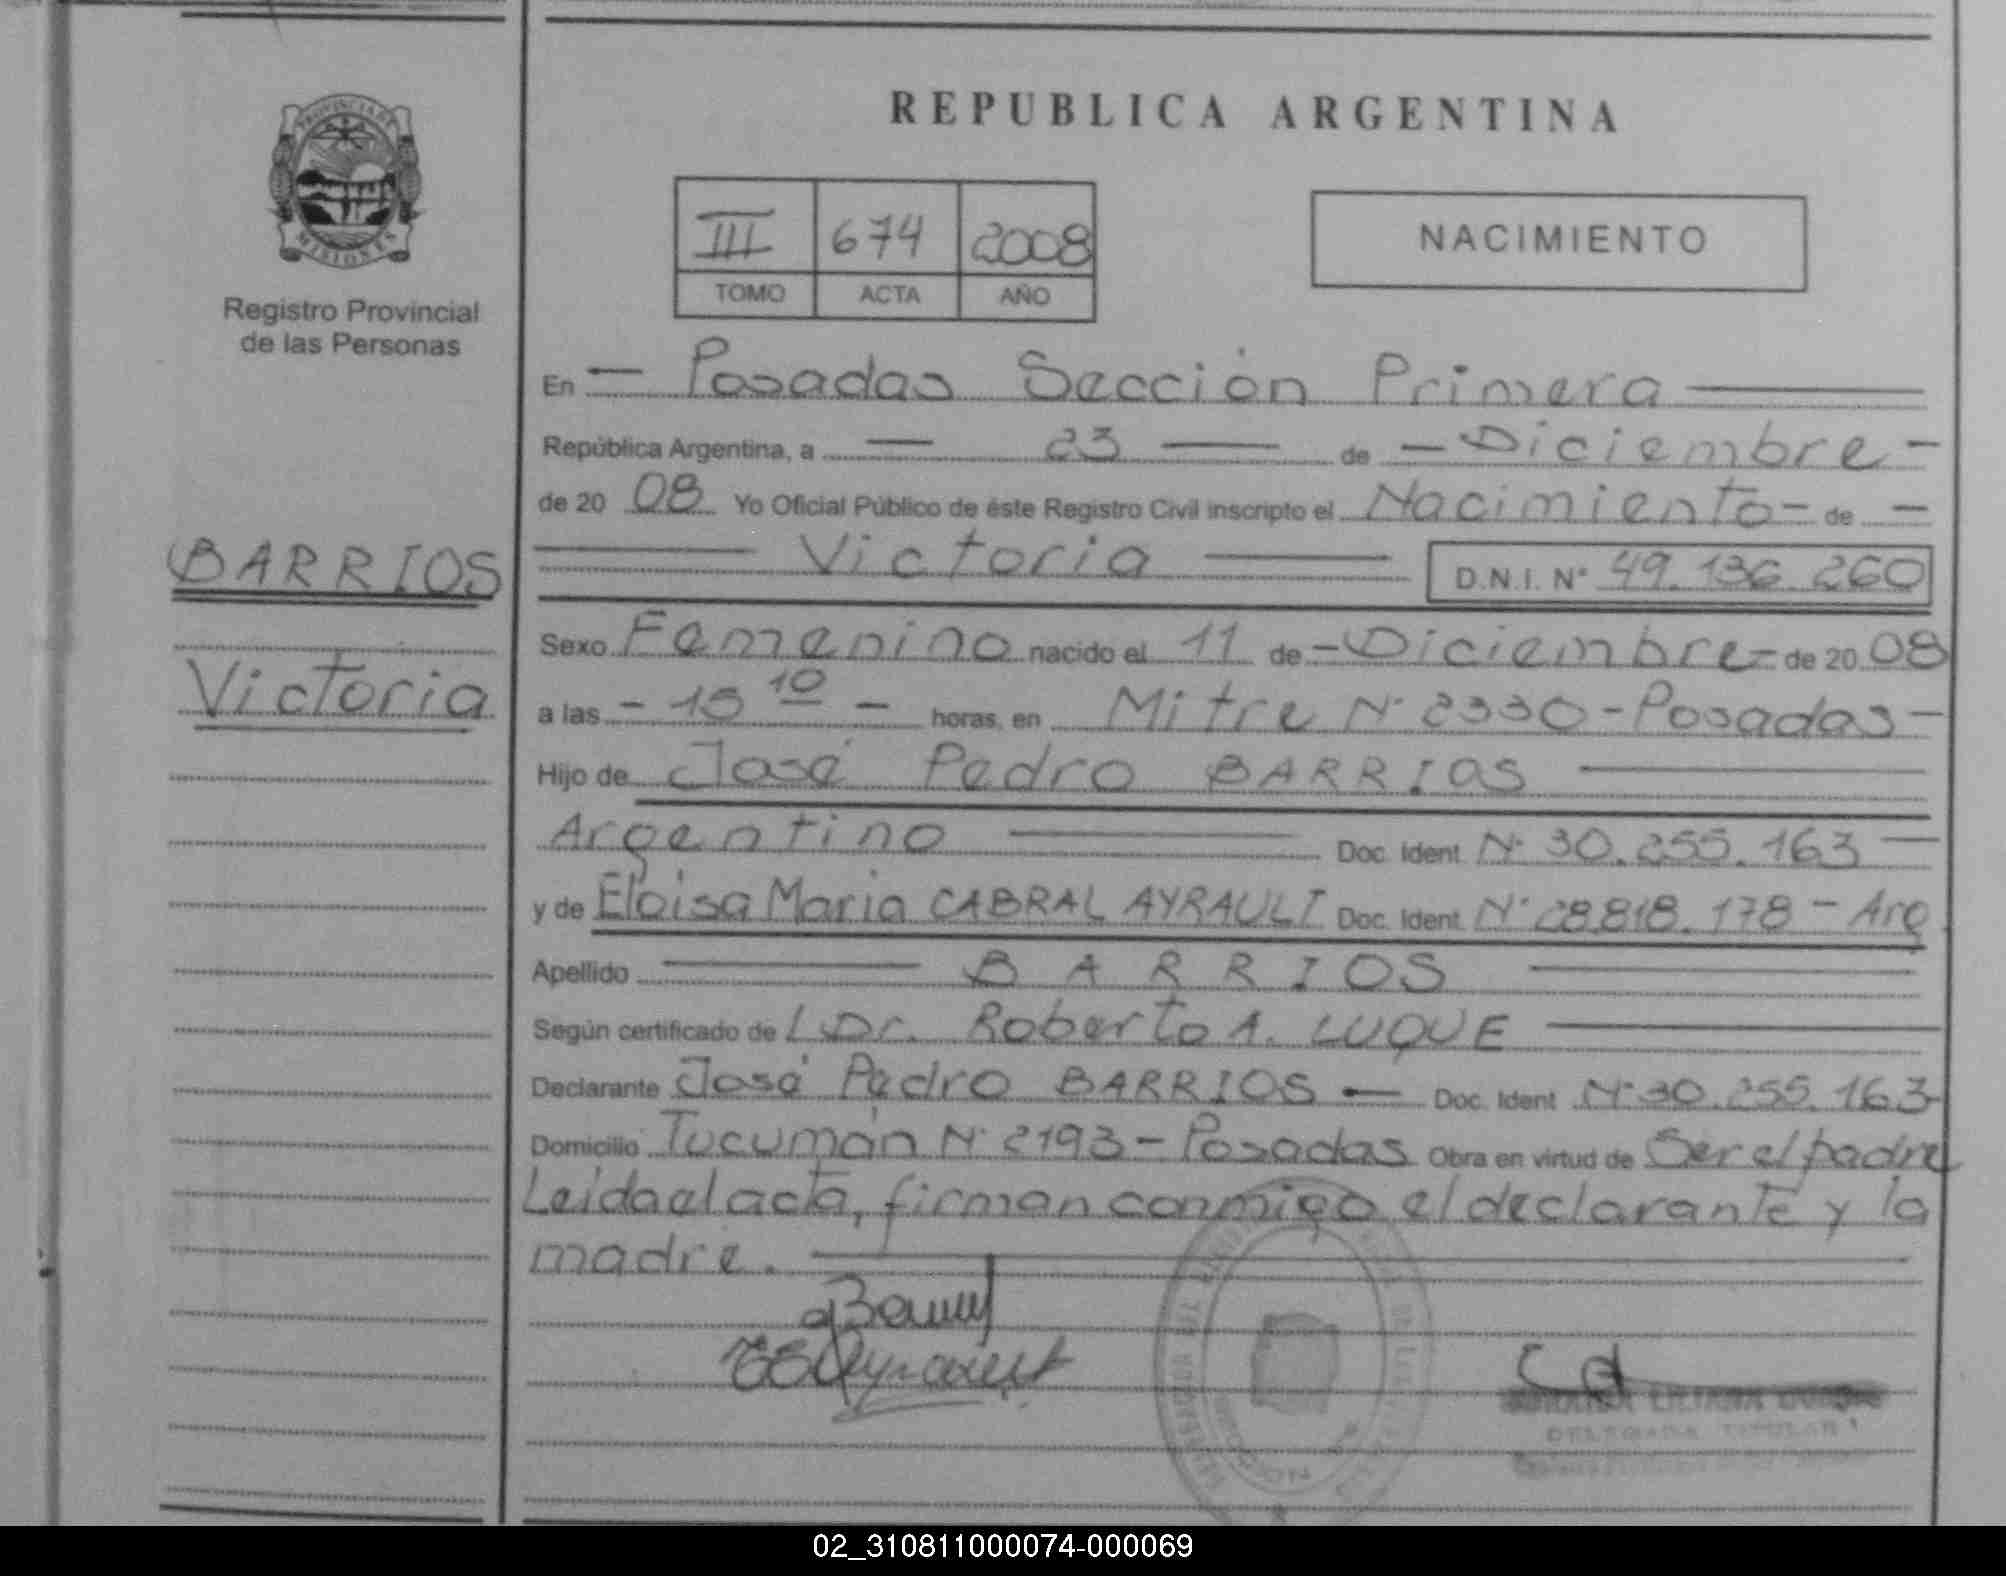 PROVINCIA DE
MISIONES
Registro Provincial
de las Personas
BARRIOS
Victoria
REPUBLICA ARGENTINA
III 674 2008
TOMO ACTA AÑO
NACIMIENTO
En — Posadas Sección Primera —
República Argentina, a — 23 — de — Diciembre —
de 20 08 Yo Oficial Público de éste Registro Civil inscripto el Nacimiento — de —
— Victoria — D.N.I. N° 49.136.260
Sexo Femenino nacido el 11 de — Diciembre — de 20 08
a las — 15 10 — horas, en Mitre N° 2330 - Posadas —
Hijo de José Pedro BARRIOS —
Argentino — Doc. Ident N° 30.255.163 —
y de Eloisa Maria CABRAL AYRAULT Doc. Ident. N° 28.818.178 - Arg
Apellido — BARRIOS —
Según certificado de Dr. Roberto A. LUQUE —
Declarante José Pedro BARRIOS — Doc. Ident N° 30.255.163
Domicilio Tucumán N° 2193 - Posadas Obra en virtud de Ser el padre
Leida el acta, firman conmigo el declarante y la
madre. —
LILIANA
DELEGADA TITULAR
02_310811000074-000069